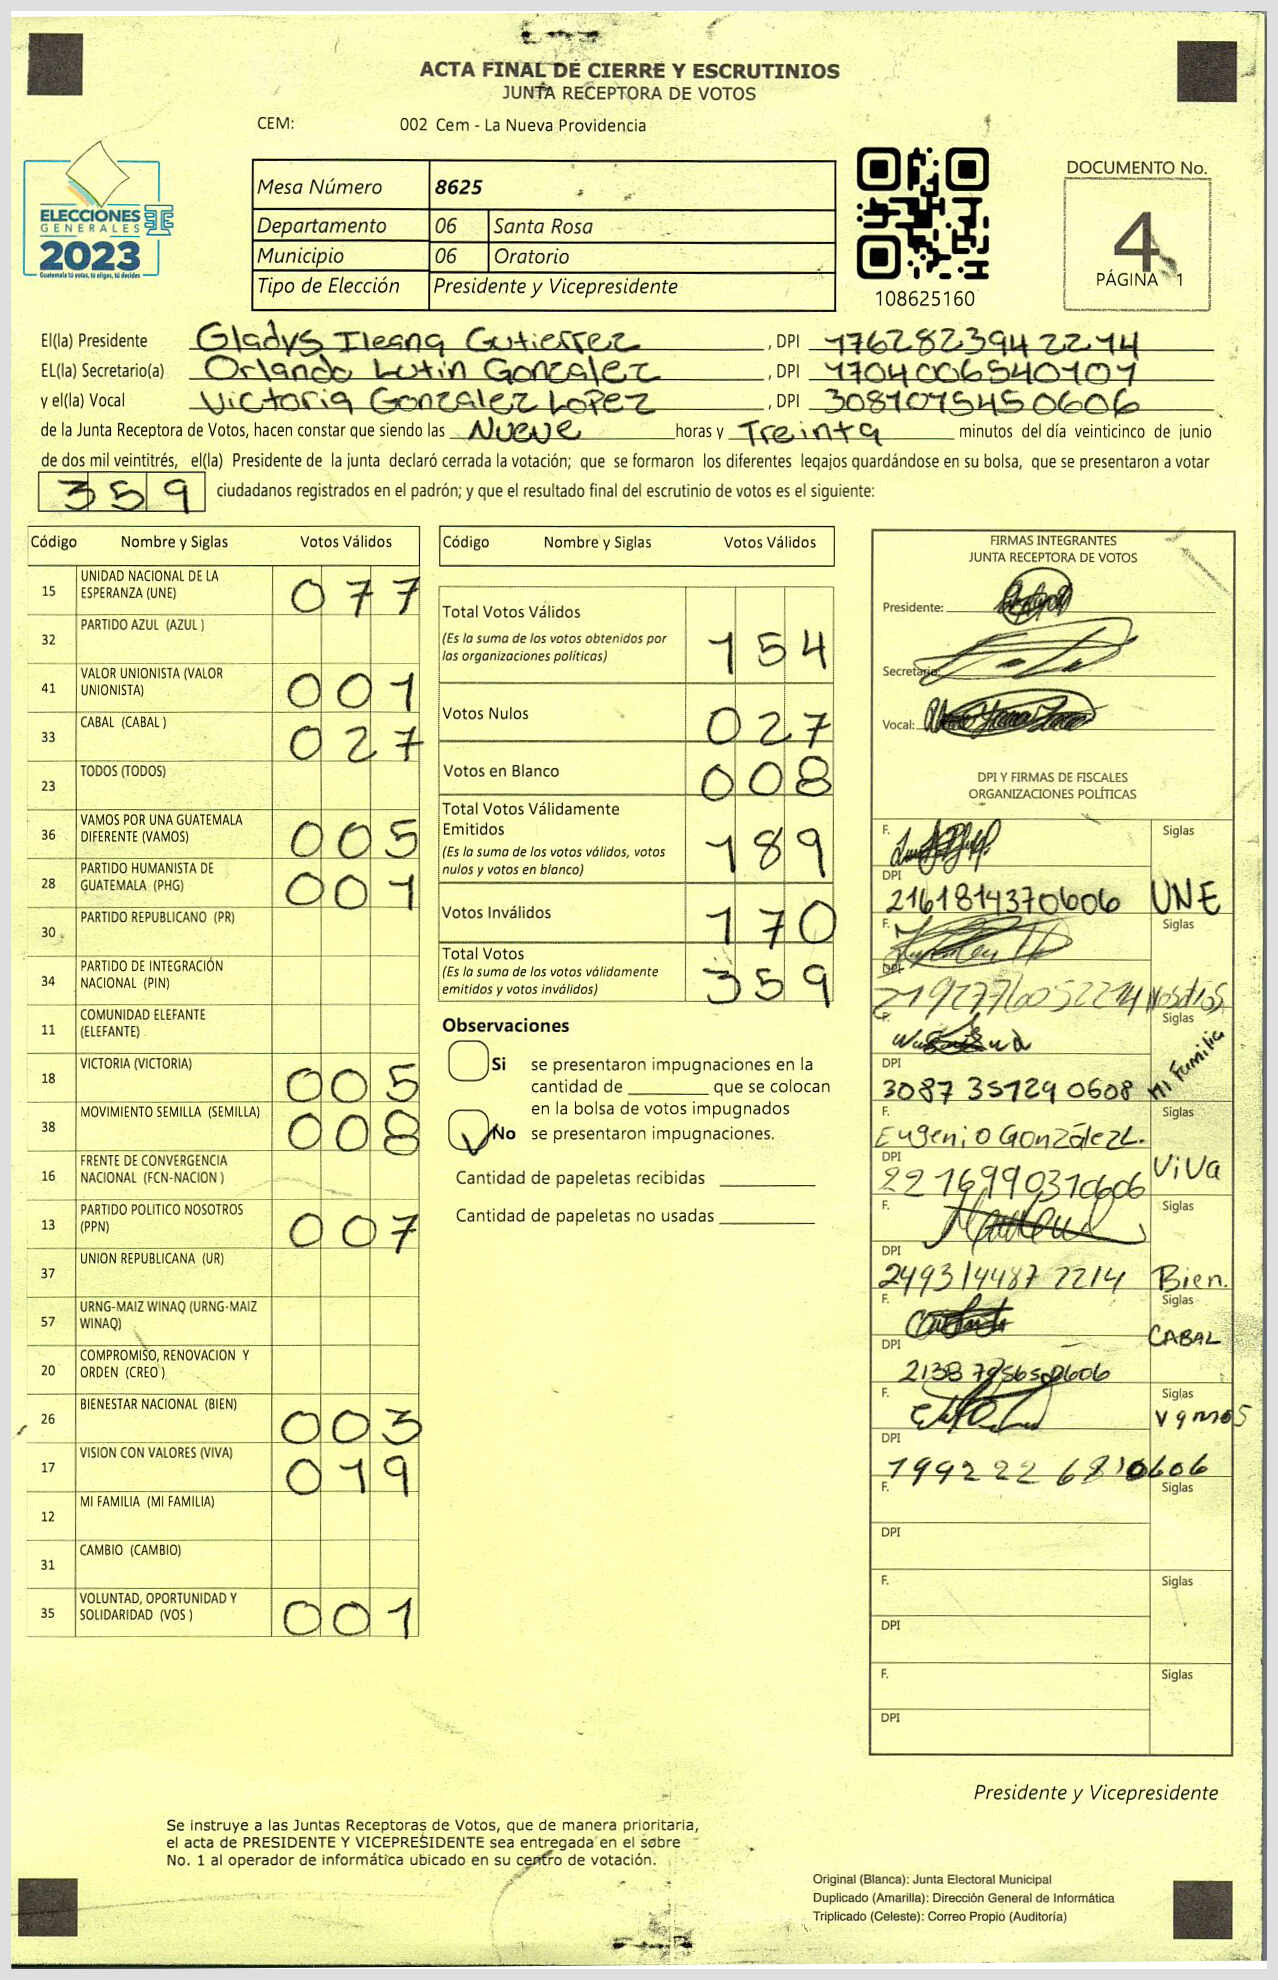 ACTA FINAL DE CIERRE Y ESCRUTINIOS
JUNTA RECEPTORA DE VOTOS
CEM: 002 Cem - La Nueva Providencia
ELECCIONES
GENERALES
2023
Guatemala tú votas, tú eliges, tú decides
Mesa Número 8625
Departamento 06 Santa Rosa
Municipio 06 Oratorio
Tipo de Elección Presidente y Vicepresidente
108625160
DOCUMENTO No.
4
PÁGINA 1
El(la) Presidente Gladys Ileana Gutierrez , DPI 1762823942214
EL(la) Secretario(a) Orlando Lutin Gonzalez , DPI 1704006540101
y el(la) Vocal Victoria Gonzalez Lopez , DPI 3087075450606
de la Junta Receptora de Votos, hacen constar que siendo las Nueve horas y Treinta minutos del día veinticinco de junio
de dos mil veintitrés, el(la) Presidente de la junta declaró cerrada la votación; que se formaron los diferentes legajos guardándose en su bolsa, que se presentaron a votar
359 ciudadanos registrados en el padrón; y que el resultado final del escrutinio de votos es el siguiente:
Código Nombre y Siglas Votos Válidos
15 UNIDAD NACIONAL DE LA ESPERANZA (UNE) 077
32 PARTIDO AZUL (AZUL )
41 VALOR UNIONISTA (VALOR UNIONISTA) 001
33 CABAL (CABAL ) 027
23 TODOS (TODOS)
36 VAMOS POR UNA GUATEMALA DIFERENTE (VAMOS) 005
28 PARTIDO HUMANISTA DE GUATEMALA (PHG) 001
30 PARTIDO REPUBLICANO (PR)
34 PARTIDO DE INTEGRACIÓN NACIONAL (PIN)
11 COMUNIDAD ELEFANTE (ELEFANTE)
18 VICTORIA (VICTORIA) 005
38 MOVIMIENTO SEMILLA (SEMILLA) 008
16 FRENTE DE CONVERGENCIA NACIONAL (FCN-NACION )
13 PARTIDO POLITICO NOSOTROS (PPN) 007
37 UNION REPUBLICANA (UR)
57 URNG-MAIZ WINAQ (URNG-MAIZ WINAQ)
20 COMPROMISO, RENOVACION Y ORDEN (CREO )
26 BIENESTAR NACIONAL (BIEN) 003
17 VISION CON VALORES (VIVA) 019
12 MI FAMILIA (MI FAMILIA)
31 CAMBIO (CAMBIO)
35 VOLUNTAD, OPORTUNIDAD Y SOLIDARIDAD (VOS ) 001
Código Nombre y Siglas Votos Válidos
Total Votos Válidos 154
(Es la suma de los votos obtenidos por
las organizaciones políticas)
Votos Nulos 027
Votos en Blanco 008
Total Votos Válidamente
Emitidos 189
(Es la suma de los votos válidos, votos
nulos y votos en blanco)
Votos Inválidos 170
Total Votos 359
(Es la suma de los votos válidamente
emitidos y votos inválidos)
Observaciones
Si se presentaron impugnaciones en la
cantidad de ________ que se colocan
en la bolsa de votos impugnados
No se presentaron impugnaciones.
Cantidad de papeletas recibidas
Cantidad de papeletas no usadas
FIRMAS INTEGRANTES
JUNTA RECEPTORA DE VOTOS
Presidente:
Secretario:
Vocal:
DPI Y FIRMAS DE FISCALES
ORGANIZACIONES POLÍTICAS
F. Siglas
DPI
2161814370606 UNE
F. Siglas
DPI
2192776052214 Nosotros
F. Siglas
DPI
3087 35129 0608 Mi Familia
F. Siglas
Eugenio González L.
DPI
2216990310606 ViVa
F. Siglas
DPI
249314487 2214 Bien.
F. Siglas
CABAL
DPI
F. Siglas
vamos
DPI
F. Siglas
DPI
F. Siglas
DPI
F. Siglas
DPI
Presidente y Vicepresidente
Se instruye a las Juntas Receptoras de Votos, que de manera prioritaria,
el acta de PRESIDENTE Y VICEPRESIDENTE sea entregada en el sobre
No. 1 al operador de informática ubicado en su centro de votación.
Original (Blanca): Junta Electoral Municipal
Duplicado (Amarilla): Dirección General de Informática
Triplicado (Celeste): Correo Propio (Auditoría)